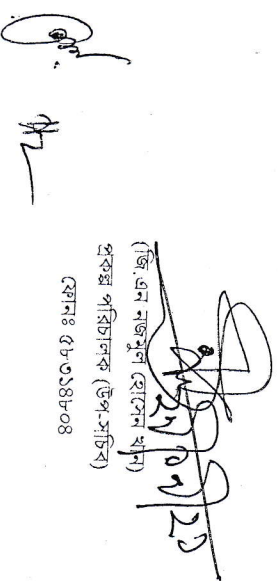 (জি.এন নজমুল হোসেন খান)
প্রকল্প পরিচালক (উপ-সচিব)
ফোনঃ ৫৮৩১৪৮০৪